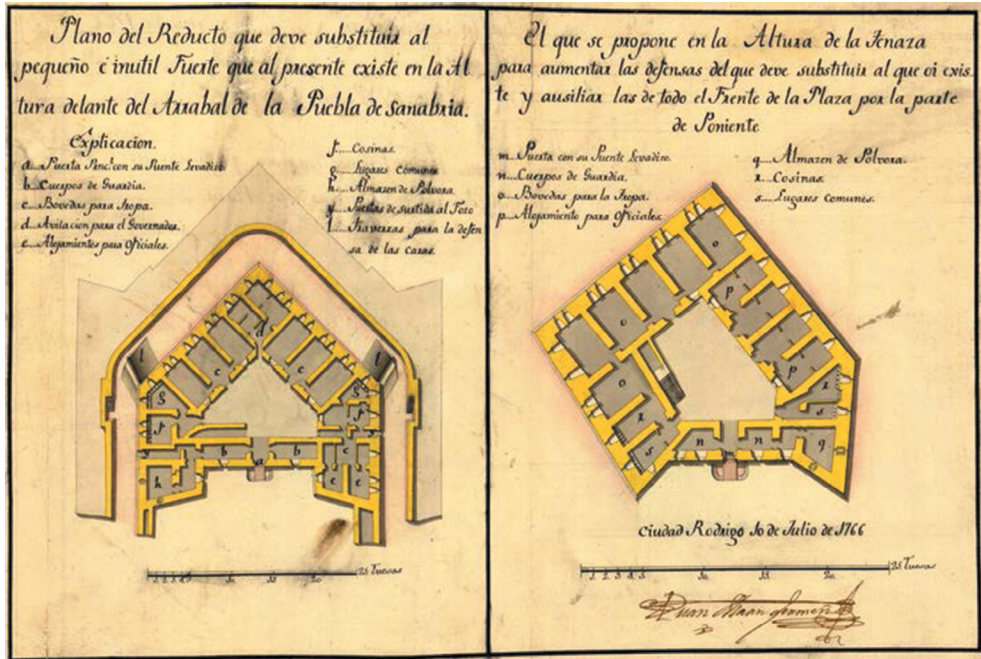 Plano del Reducto que deve substituir al
pequeño é inutil Fuerte que al presente existe en la Al
tura delante del Arrabal de la Puebla de Sanabria.
Explicacion.
a....Puerta Princ.l con su Puente Levadizo
b....Cuerpos de Guardia.
c....Bovedas para Tropa.
d....Avitacion para el Governador.
e....Alojamientos para Oficiales.
f.....Cosinas.
g....Lugares comunes
h....Almazen de Polvora.
y....Puertas de surtida al Foso
l.....Traverzas para la defen
sa de las caras.
l
l
d
c
c
g
g
f
f
y
b
a
b
c
h
e
e
25 Tuesas
El que se propone en la Altura de la Tenaza
para aumentar las defensas del que deve substituir al que oi exis
te y ausiliar las de todo el Frente de la Plaza por la parte
de Poniente
m....Puerta con su Puente Levadizo.
n....Cuerpos de Guardia.
o....Bovedas para la Tropa.
p....Alojamiento para Oficiales.
q....Almazen de Polvora.
r....Cosinas.
s....Lugares comunes.
o
o
o
p
p
r
r
s
s
n
m
n
q
Ciudad Rodrigo 10 de Julio de 1766
25 Tuesas
Juan